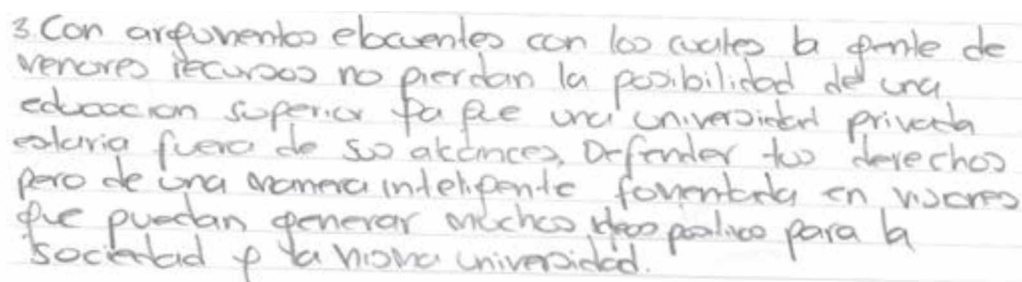 3. Con argumentos elocuentes con los cuales la gente de
menores recursos no pierdan la posibilidad de una
educacion superior ya que una universidad privada
estaria fuera de sus alcances. Defender tus derechos
pero de una manera inteligente fomentada en visiones
que puedan generar muchas ideas positivo para la
sociedad y la misma universidad.